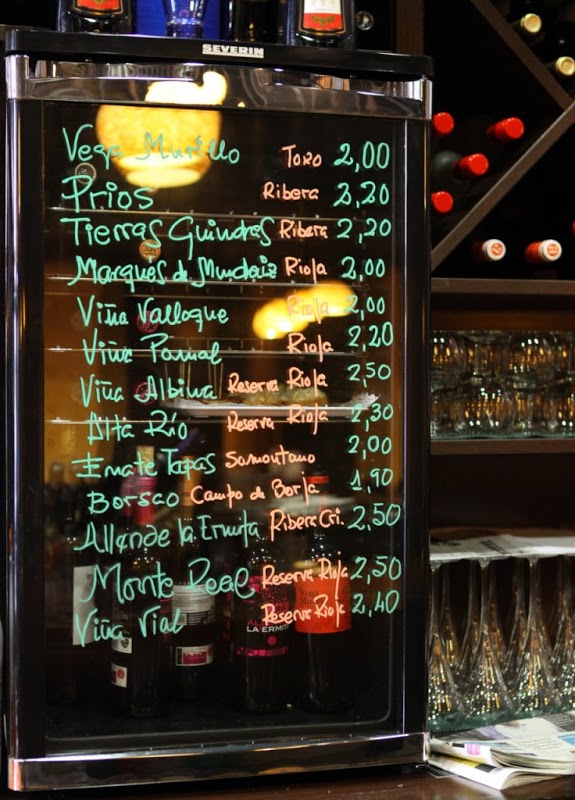 SEVERIN
Vega Murillo Toro 2,00
Prios Ribera 2,20
Tierras Guindres Ribera 2,20
Marques de Rioja 2,00
Viña Valloque Rioja 2,00
Viña Pomal Rioja 2,20
Viña Albina Reserva Rioja 2,50
Alta Río Reserva Rioja 2,30
Enate Tapas Somontano 2,00
Borsao Campo de Borja 1,90
Allende la Ermita Ribera Cri. 2,50
Monte Real Reserva Rioja 2,50
Viña Vial Reserva Rioja 2,40
LA ERMIT